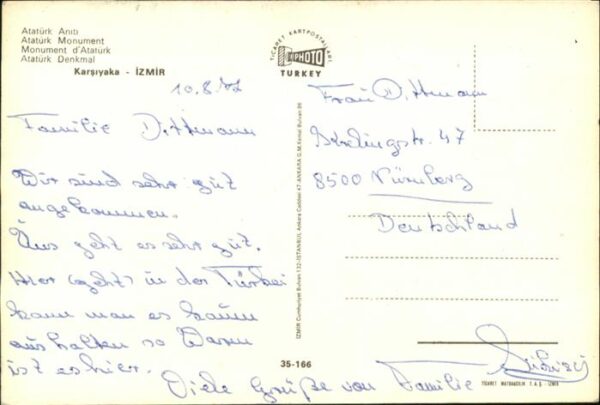 Atatürk Anıtı
Atatürk Monument
Monument d'Atatürk
Atatürk Denkmal
Karşıyaka - İZMİR
TİCARET KARTPOSTALLARI
PHOTO
TURKEY
10.8.
Familie Dittmann
Wir sind sehr gut
angekommen.
Uns geht es sehr gut.
Hier (geht) in der Türkei
kann man es kaum
aushalten so Warm
ist es hier.
Viele Grüße von Familie
Frau Dittmann
47
8500 Nürnberg
Deutschland
İZMİR Cumhuriyet Bulvarı 132-İSTANBUL Ankara Caddesi 47 ANKARA G.M.Kemal Bulvarı
35-166
TİCARET MATBAACILIK T.A.Ş. - İZMİR